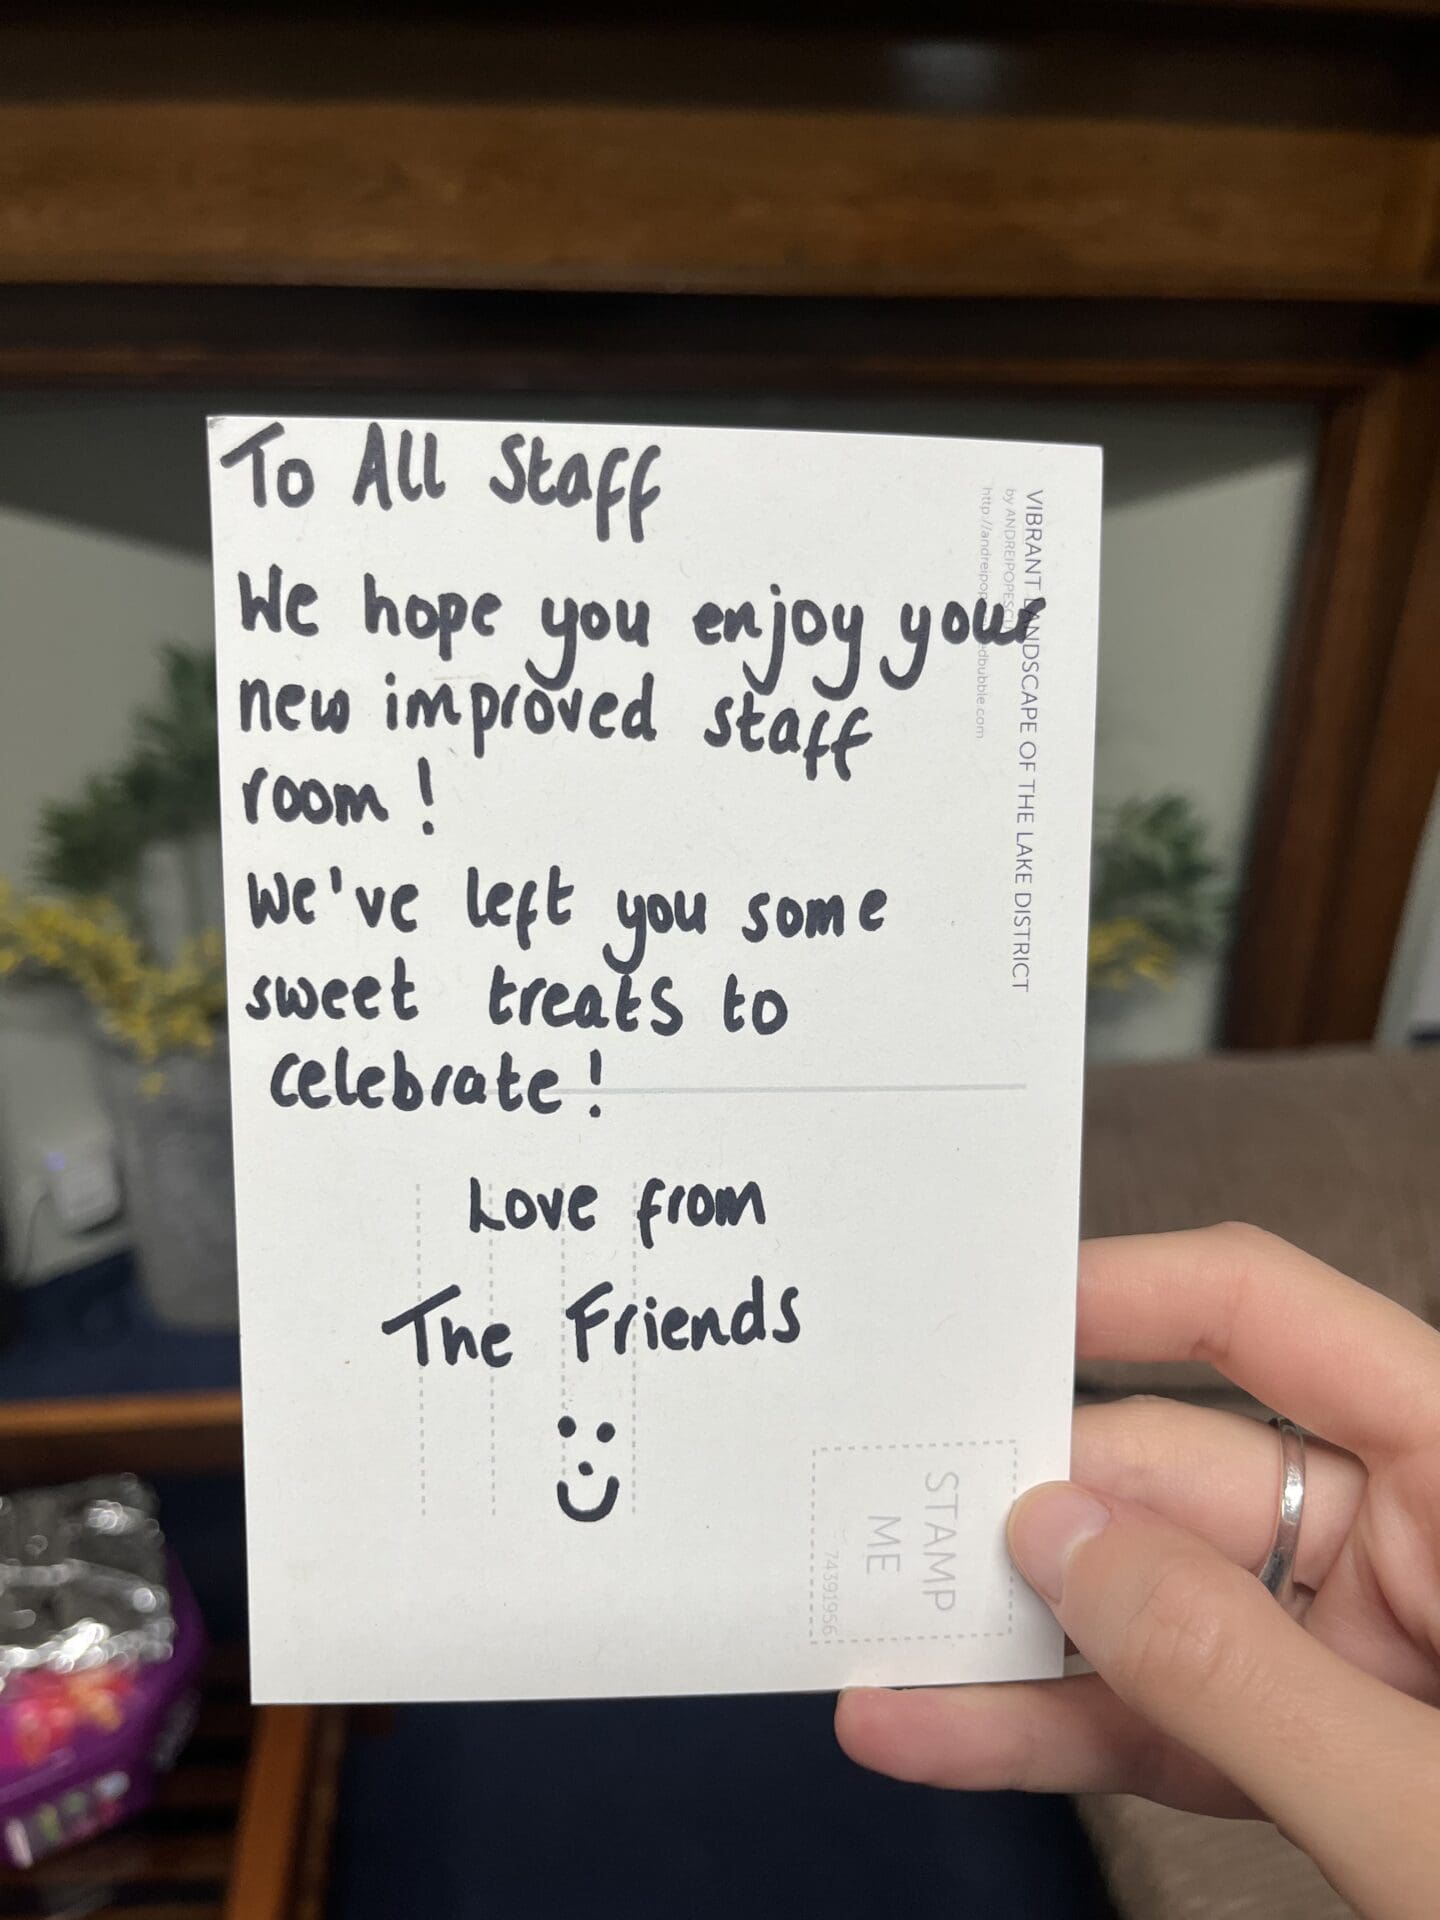 To All Staff
We hope you enjoy your
new improved staff
room!
We've left you some
sweet treats to
celebrate!
Love from
The Friends
VIBRANT LANDSCAPE OF THE LAKE DISTRICT
by ANDREIPOPESCU
STAMP
ME
74391956